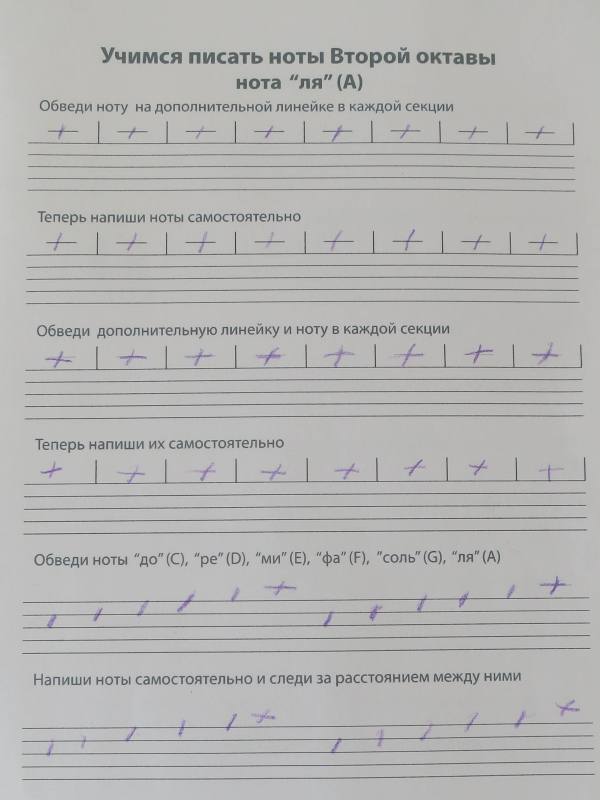 Учимся писать ноты Второй октавы
нота “ля” (A)
Обведи ноту на дополнительной линейке в каждой секции
Теперь напиши ноты самостоятельно
Обведи дополнительную линейку и ноту в каждой секции
Теперь напиши их самостоятельно
Обведи ноты “до” (C), “ре” (D), “ми” (E), “фа” (F), ”соль” (G), “ля” (A)
Напиши ноты самостоятельно и следи за расстоянием между ними